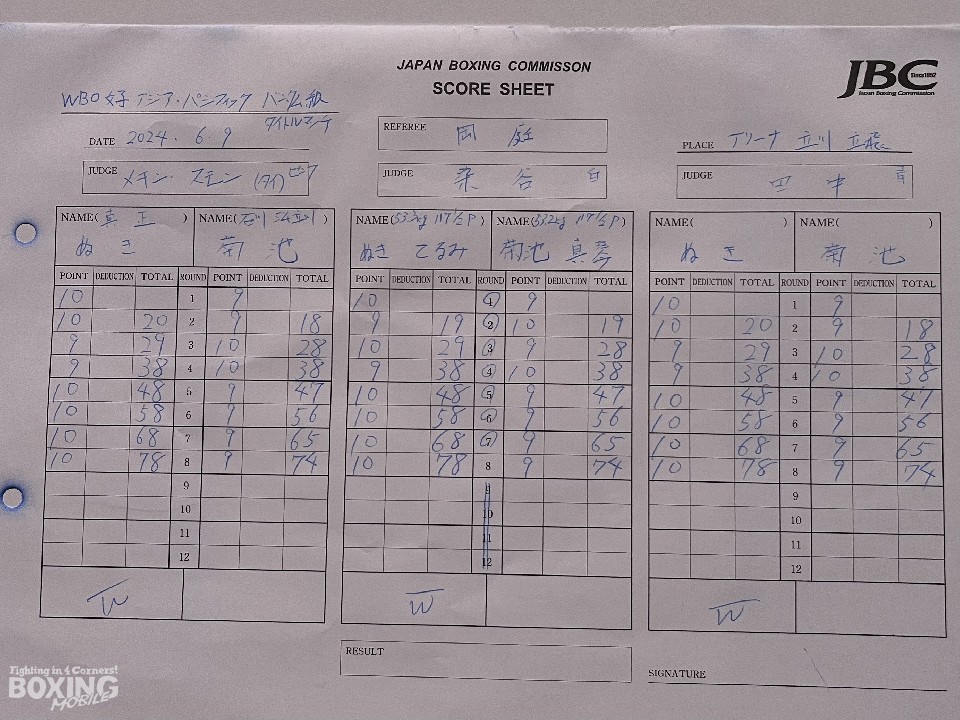 JAPAN BOXING COMMISSON
SCORE SHEET
JBC Since1952
Japan Boxing Commission
WBO女子 アジア・パシフィック バンタム級
タイトルマッチ
DATE 2024. 6. 9
REFEREE 岡庭
PLACE アリーナ立川立飛
JUDGE (タイ)
JUDGE 染谷
JUDGE 田中
NAME(真正) NAME(石川 立川)
ぬき 菊池
POINT DEDUCTION TOTAL ROUND POINT DEDUCTION TOTAL
10 1 9
10 20 2 9 18
9 29 3 10 28
9 38 4 10 38
10 48 5 9 47
10 58 6 9 56
10 68 7 9 65
10 78 8 9 74
9
10
11
12
W
NAME(53.3kg 117 1/2P) NAME(53.2kg 117 1/4P)
ぬき てるみ 菊池 真琴
POINT DEDUCTION TOTAL ROUND POINT DEDUCTION TOTAL
10 1 9
9 19 2 10 19
10 29 3 9 28
9 38 4 10 38
10 48 5 9 47
10 58 6 9 56
10 68 7 9 65
10 78 8 9 74
9
10
11
12
W
NAME( ) NAME( )
ぬき 菊池
POINT DEDUCTION TOTAL ROUND POINT DEDUCTION TOTAL
10 1 9
10 20 2 9 18
9 29 3 10 28
9 38 4 10 38
10 48 5 9 47
10 58 6 9 56
10 68 7 9 65
10 78 8 9 74
9
10
11
12
W
RESULT
SIGNATURE
Fighting in 4 Corners!
BOXING
MOBILE